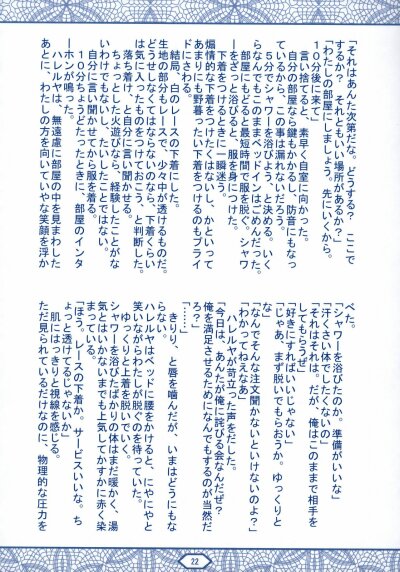 「それはあんた次第だな。どうする？　ここで
するか？　それともいい場所があるか？」
「わたしの部屋にしましょう。先にいくから、
１０分後に来て」
言い捨てると、素早く自室に向かった。
自分の部屋なら鍵もかかるし、防音にもなっ
ているから、この事は漏れないだろう。
５分でシャワーを浴びよう、と決める。いく
らなんでもこのままベッドインはごめんだった。
部屋にもどると最短時間で服を脱ぐ。シャワ
ーをざっと浴びると、服を身につけた。
下着をつけるときに一瞬迷う。
煽情的な下着をつけたくはないし、かといって
あまりにも野暮ったい下着をつけるのもプライ
ドにさわる。
結局、白のレースの下着にした。
生地の部分もレースで、少々中が透けるものだ。
どうせしなくてはならないのなら、下着くらい
は気に入ったものをつけておこう、と判断した。
落ち着け、と自分に言い聞かせる。
ちょっとした火遊びなら、経験したことがな
いわけでもないし、たいしたことではない。
自分に言い聞かせてから服を着る。
１０分ちょうどたったときに、部屋のインタ
ーホンが鳴った。
ハレルヤは、無遠慮に部屋の中を見まわした
あとに、わたしの方を向いていやな笑顔を浮か
べた。
「シャワーを浴びたのか。準備がいいな」
「汗くさい体でしたくないの」
「それはそれは。だが、俺はこのままで相手を
してもらうぜ」
「好きにすればいいじゃない」
「じゃあ、まず脱いでもらおうか。ゆっくりと
な」
「なんでそんな注文聞かないといけないのよ？」
「わかってねえなあ」
ハレルヤが苛立った声をだした。
「今日は、あんたが俺に詫びる会なんだぜ？
俺を満足させるためになんでもするのが当然だ
ろ？」
「……」
きりり、と唇を噛んだが、いまはどうにもな
らない。
ハレルヤはベッドに腰をかけると、にやにやと
笑いながらわたしが脱ぐのを待っていた。
ゆっくりと上着を脱いでいく。
シャワーを浴びたばかりの体はまだ暖かく、湯
気とはいかないまでも上気してかすかに赤く染
まっている。
「ほう。レースの下着か。サービスいいな。ち
ょっと透けてるじゃないか」
肌にはっきりと視線を感じる。
ただ見られているだけなのに、物理的な圧力を
22